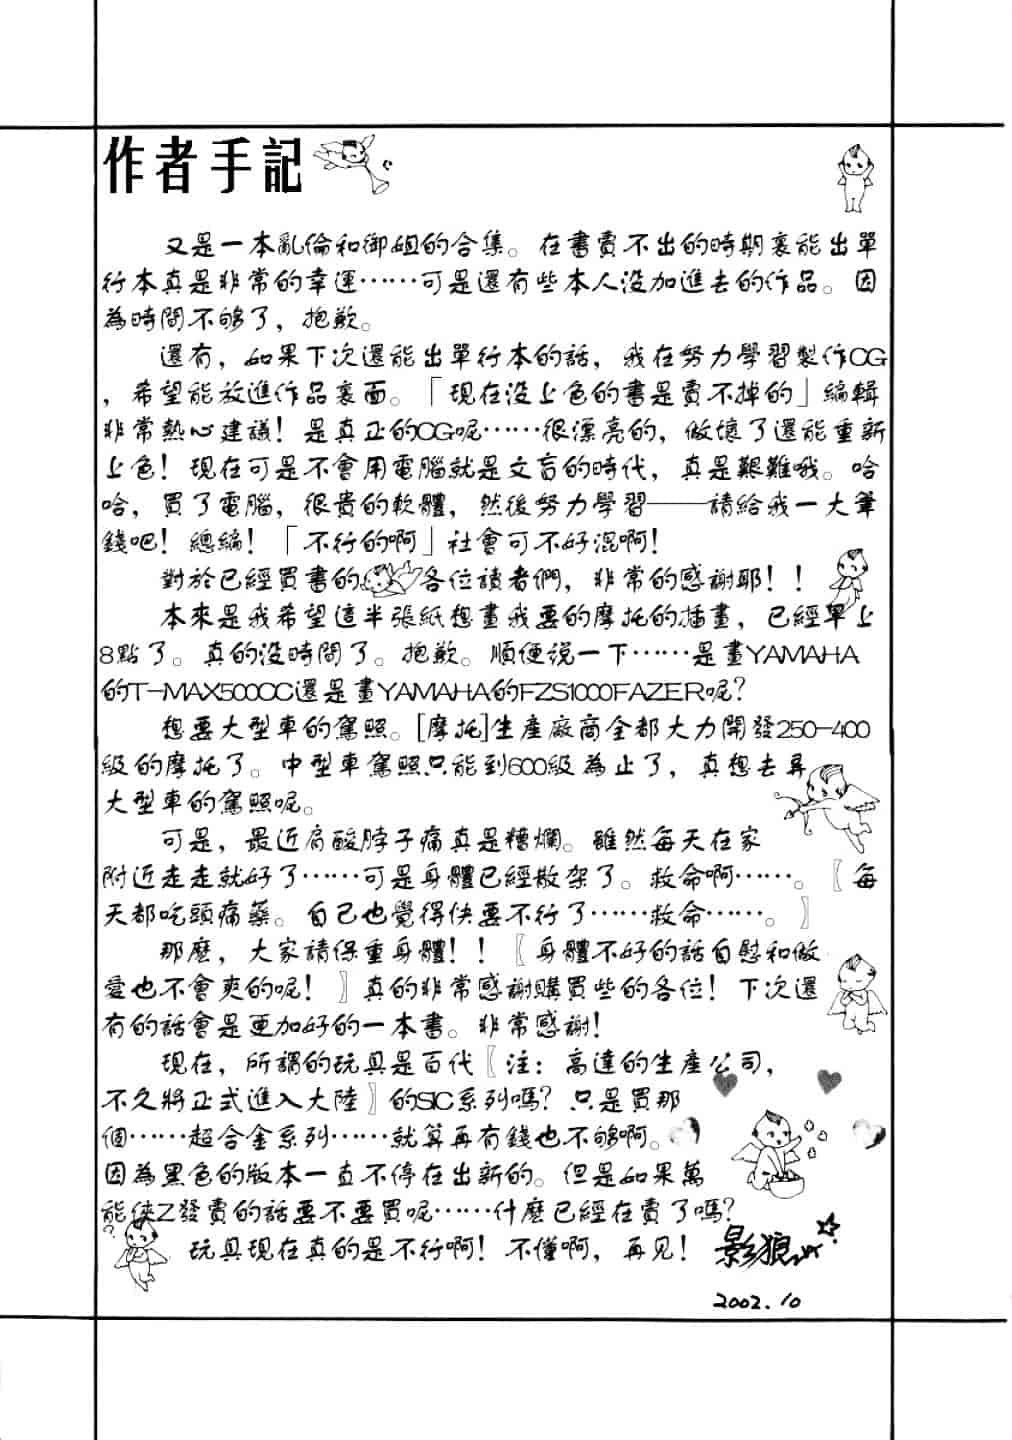 作者手記
又是一本亂倫和御姐的合集。在書賣不出的時期裏能出單
行本真是非常的幸運……可是還有些本人沒加進去的作品。因
為時間不够了，抱歉。
還有，如果下次還能出單行本的話，我在努力學習製作CG
，希望能放進作品裏面。「現在沒上色的書是賣不掉的」編輯
非常熱心建議！是真正的CG呢……很漂亮的，做壞了還能重新
上色！現在可是不會用電腦就是文盲的時代，真是艱難哦。哈
哈，買了電腦，很貴的軟體，然後努力學習——請給我一大筆
錢吧！總編！「不行的啊」社會可不好混啊！
對於已經買書的 各位讀者們，非常的感謝耶！！
本來是我希望這半張紙想畫我要的摩托的插畫，已經早上
8點了。真的沒時間了。抱歉。順便說一下……是畫YAMAHA
的T-MAX500CC還是畫YAMAHA的FZS1000FAZER呢？
想要大型車的駕照。[摩托]生產廠商全都大力開發250-400
級的摩托了。中型車駕照只能到600級為止了，真想去弄
大型車的駕照呢。
可是，最近肩酸脖子痛真是糟爛。雖然每天在家
附近走走就好了……可是身體已經散架了。救命啊……。〖每
天都吃頭痛藥。自己也覺得快要不行了……救命……。〗
那麼，大家請保重身體！！〖身體不好的話自慰和做
愛也不會爽的呢！〗真的非常感謝購買些的各位！下次還
有的話會是更加好的一本書。非常感謝！
現在，所謂的玩具是百代〖注：高達的生產公司，
不久將正式進入大陸〗的SIC系列嗎？只是買那
個……超合金系列……就算再有錢也不够啊。
因為黑色的版本一直不停在出新的。但是如果萬
能俠Z發賣的話要不要買呢……什麼已經在賣了嗎？
玩具現在真的是不行啊！不懂啊，再見！
影狼
2002.10